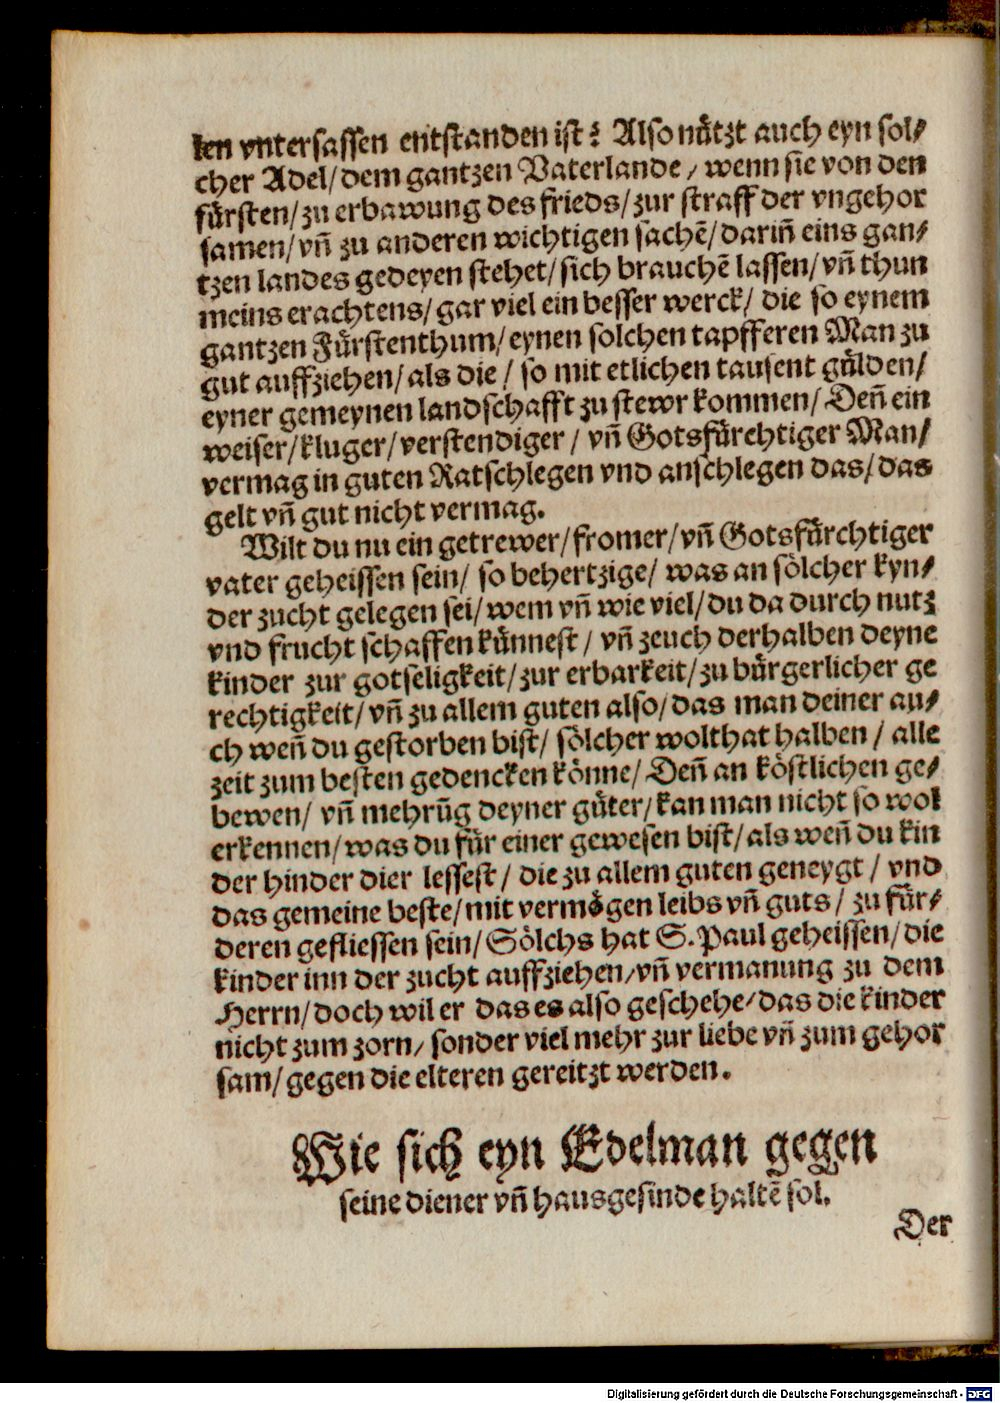 ken vntersassen entstanden ist? Also nützt auch eyn sol⸗
cher Adel/dem gantzen Vaterlande/ wenn sie von den
fürsten/zu erbawung des frieds/zur straff der vngehor
samen/vñ zu anderen wichtigen sachẽ/dariñ eins gan⸗
tzen landes gedeyen stehet/sich brauchẽ lassen/vñ thun
meins erachtens/gar viel ein besser werck/ die so eynem
gantzen Fürstenthum/eynen solchen tapfferen Man zu
gut auffziehen/als die/ so mit etlichen tausent gülden/
eyner gemeynen landschafft zu stewr kommen/Deñ ein
weiser/kluger/verstendiger/ vñ Gotsfürchtiger Man/
vermag in guten Ratschlegen vnd anschlegen das/das
gelt vñ gut nicht vermag.
Wilt du nu ein getrewer/fromer/vñ Gotsfürchtiger
vater geheissen sein/ so behertzige/ was an sölcher kyn⸗
der zucht gelegen sei/wem vñ wie viel/du da durch nutz
vnd frucht schaffen künnest/ vñ zeuch derhalben deyne
kinder zur gotseligkeit/zur erbarkeit/zu bürgerlicher ge
rechtigkeit/vñ zu allem guten also/das man deiner au⸗
ch weñ du gestorben bist/ sölcher wolthat halben/ alle
zeit zum besten gedencken könne/Deñ an köstlichen ge⸗
bewen/ vñ mehrũg deyner güter/kan man nicht so wol
erkennen/was du für einer gewesen bist/als weñ du kin
der hinder dier lessest/ die zu allem guten geneygt/ vnd
das gemeine beste/mit vermögen leibs vñ guts/ zu für⸗
deren gefliessen sein/Sölchs hat S. Paul geheissen/die
kinder inn der zucht auffziehen/vñ vermanung zu dem
Herrn/doch wil er das es also geschehe/das die kinder
nicht zum zorn/sonder viel mehr zur liebe vñ zum gehor
sam/gegen die elteren gereitzt werden.
Wie sich eyn Edelman gegen
seine diener vñ hausgesinde haltẽ sol.
Der
Digitalisierung gefördert durch die Deutsche Forschungsgemeinschaft - DFG